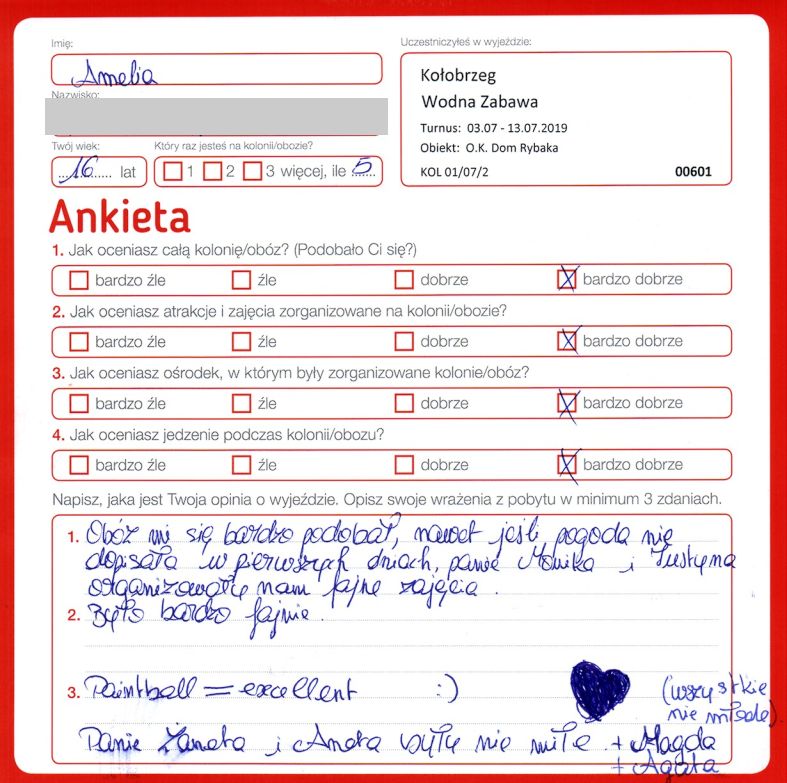 Imię:
Amelia
Nazwisko:
Twój wiek:
16 lat
Który raz jesteś na kolonii/obozie?
1 2 3 więcej, ile 5
Uczestniczyłeś w wyjeździe:
Kołobrzeg
Wodna Zabawa
Turnus: 03.07 - 13.07.2019
Obiekt: O.K. Dom Rybaka
KOL 01/07/2 00601
Ankieta
1. Jak oceniasz całą kolonię/obóz? (Podobało Ci się?)
bardzo źle źle dobrze X bardzo dobrze
2. Jak oceniasz atrakcje i zajęcia zorganizowane na kolonii/obozie?
bardzo źle źle dobrze X bardzo dobrze
3. Jak oceniasz ośrodek, w którym były zorganizowane kolonie/obóz?
bardzo źle źle dobrze X bardzo dobrze
4. Jak oceniasz jedzenie podczas kolonii/obozu?
bardzo źle źle dobrze X bardzo dobrze
Napisz, jaka jest Twoja opinia o wyjeździe. Opisz swoje wrażenia z pobytu w minimum 3 zdaniach.
1. Obóz mi się bardzo podobał, nawet jeśli pogoda nie
dopisała w pierwszych dniach, panie Monika i Justyna
organizowały nam fajne zajęcia.
2. Było bardzo fajnie.
3. Paintball = excellent :)
(wszystkie
nie młode).
Panie Żaneta i Aneta były nie miłe + Magda
+ Agata